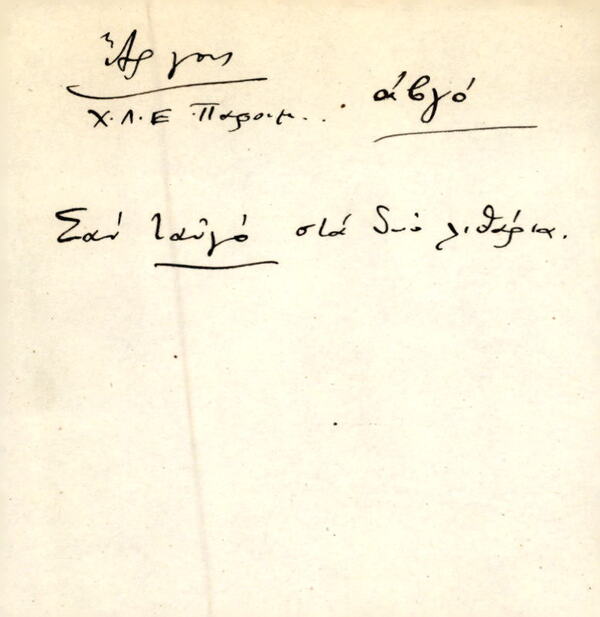 Ἄργους
Χ.Λ.Ε Παροιμ... ἀβγό
Σαν ταὐγό στά δυό λιθάρια.